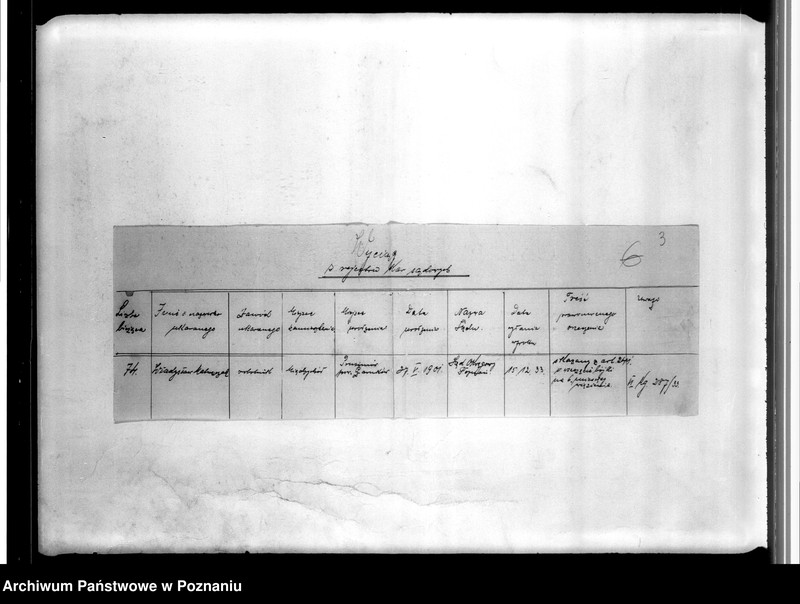 3
6
Wyciąg
z rejestru kar sądowych
Liczba bieżąca
Imię i nazwisko ukaranego
Zawód ukaranego
Miejsce zamieszkania
Miejsce urodzenia
Data urodzenia
Nazwa Sądu
Data wydania wyroku
Treść prawomocnego orzeczenia
Uwagi
74.
Władysław
robotnik
pow.
27. VI. 1901.
Sąd Okręgowy Poznań
15. 12. 33.
skazany z art. 241.
na 6
więzienia
VI. Kg. 287/33.
Archiwum Państwowe w Poznaniu